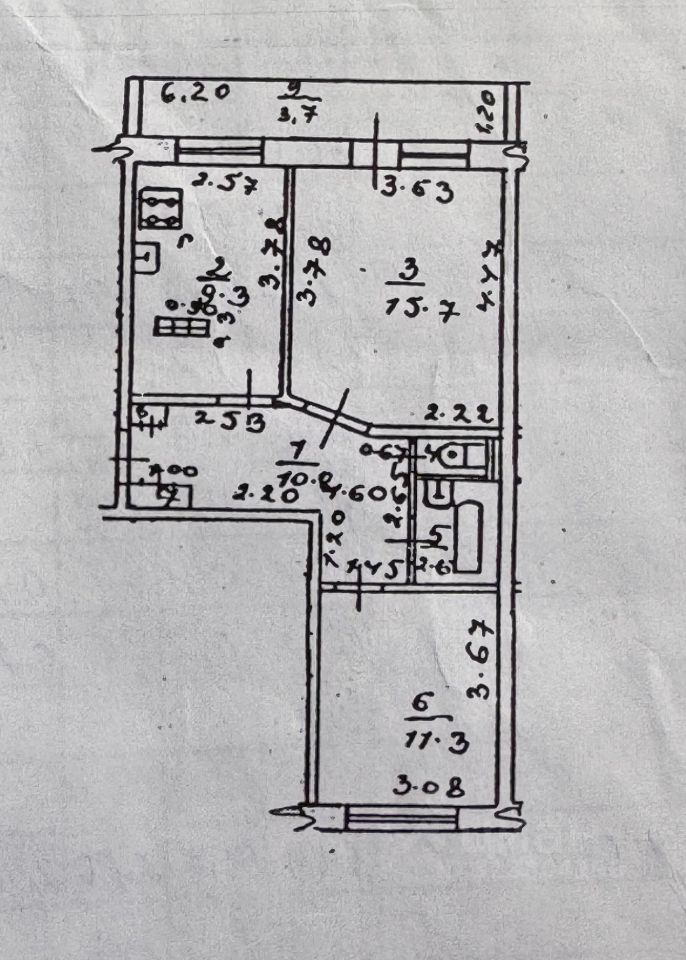 6.20
9
3.7
1.20
2.57
3.63
3.78
3.78
4.47
2
9.3
3
15.7
2.22
2.53
8
1
10.0
1.00
7
2.20
1.60
0.67
4
2.6
1.20
1.45
5
2.6
3.67
6
11.3
3.08